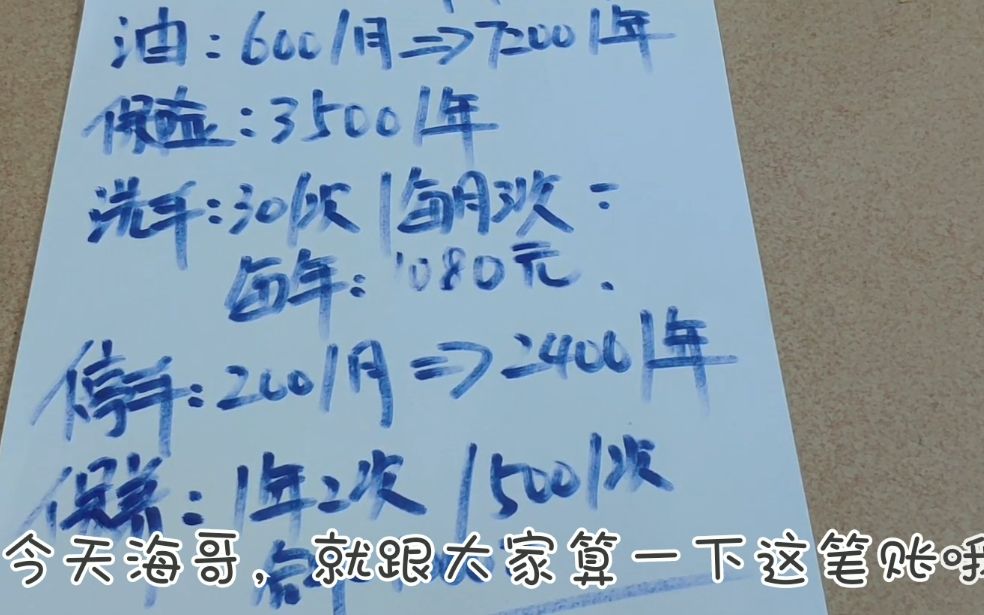 油：600/月⇒7200/年
保险：3500/年
洗车：30/次/每月3次：
每年：1080元.
停车：200/月⇒2400/年
保养：1年2次/500/次
今天海哥，就跟大家算一下这笔账哦